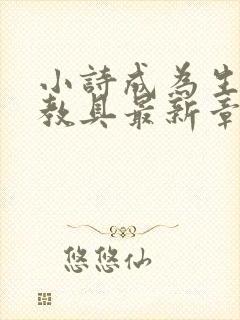 小詩成為生
教具最新章
悠悠仙